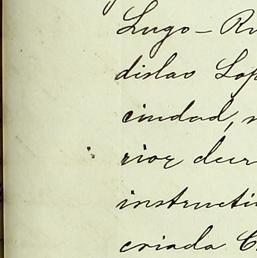 Lugo - Ru
dislao Lop
ciudad,
rior decr
instructi
criada C